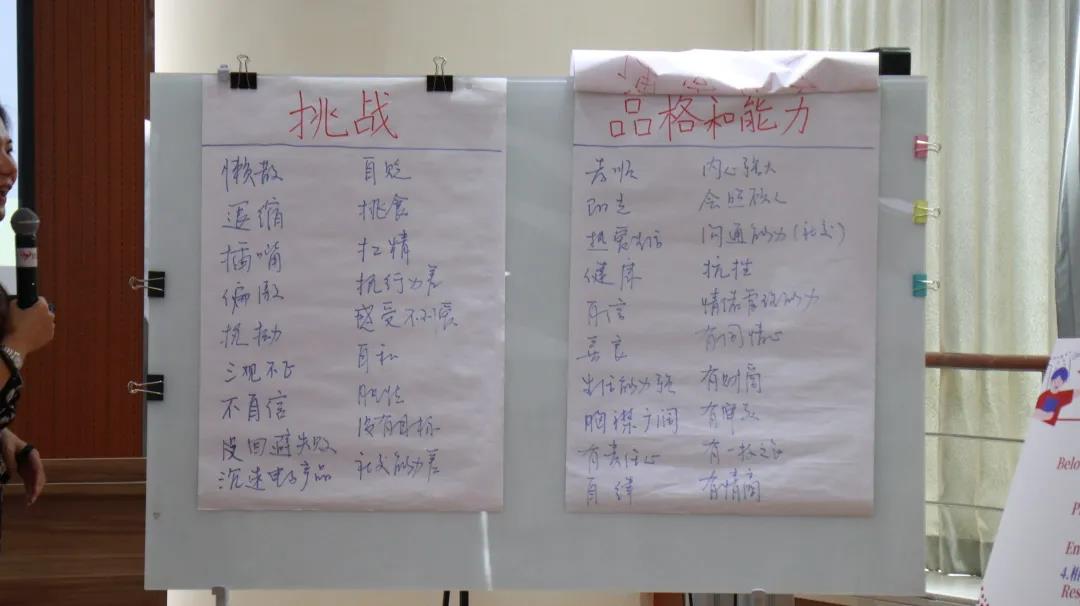 挑战
懒散
退缩
插嘴
偏激
不自信
三观不正
沉迷电子产品
自贬
挑食
扛精
执行力差
感受不到爱
自私
没有目标
社交能力差
品格和能力
孝顺
热爱生活
健康
自信
善良
生活能力强
胸襟广阔
有责任心
自律
内心强大
会照顾人
沟通能力(社交)
抗挫
情绪管理能力
有同情心
有财商
有审美
有一技之长
有情商
Belo
P
En
Res